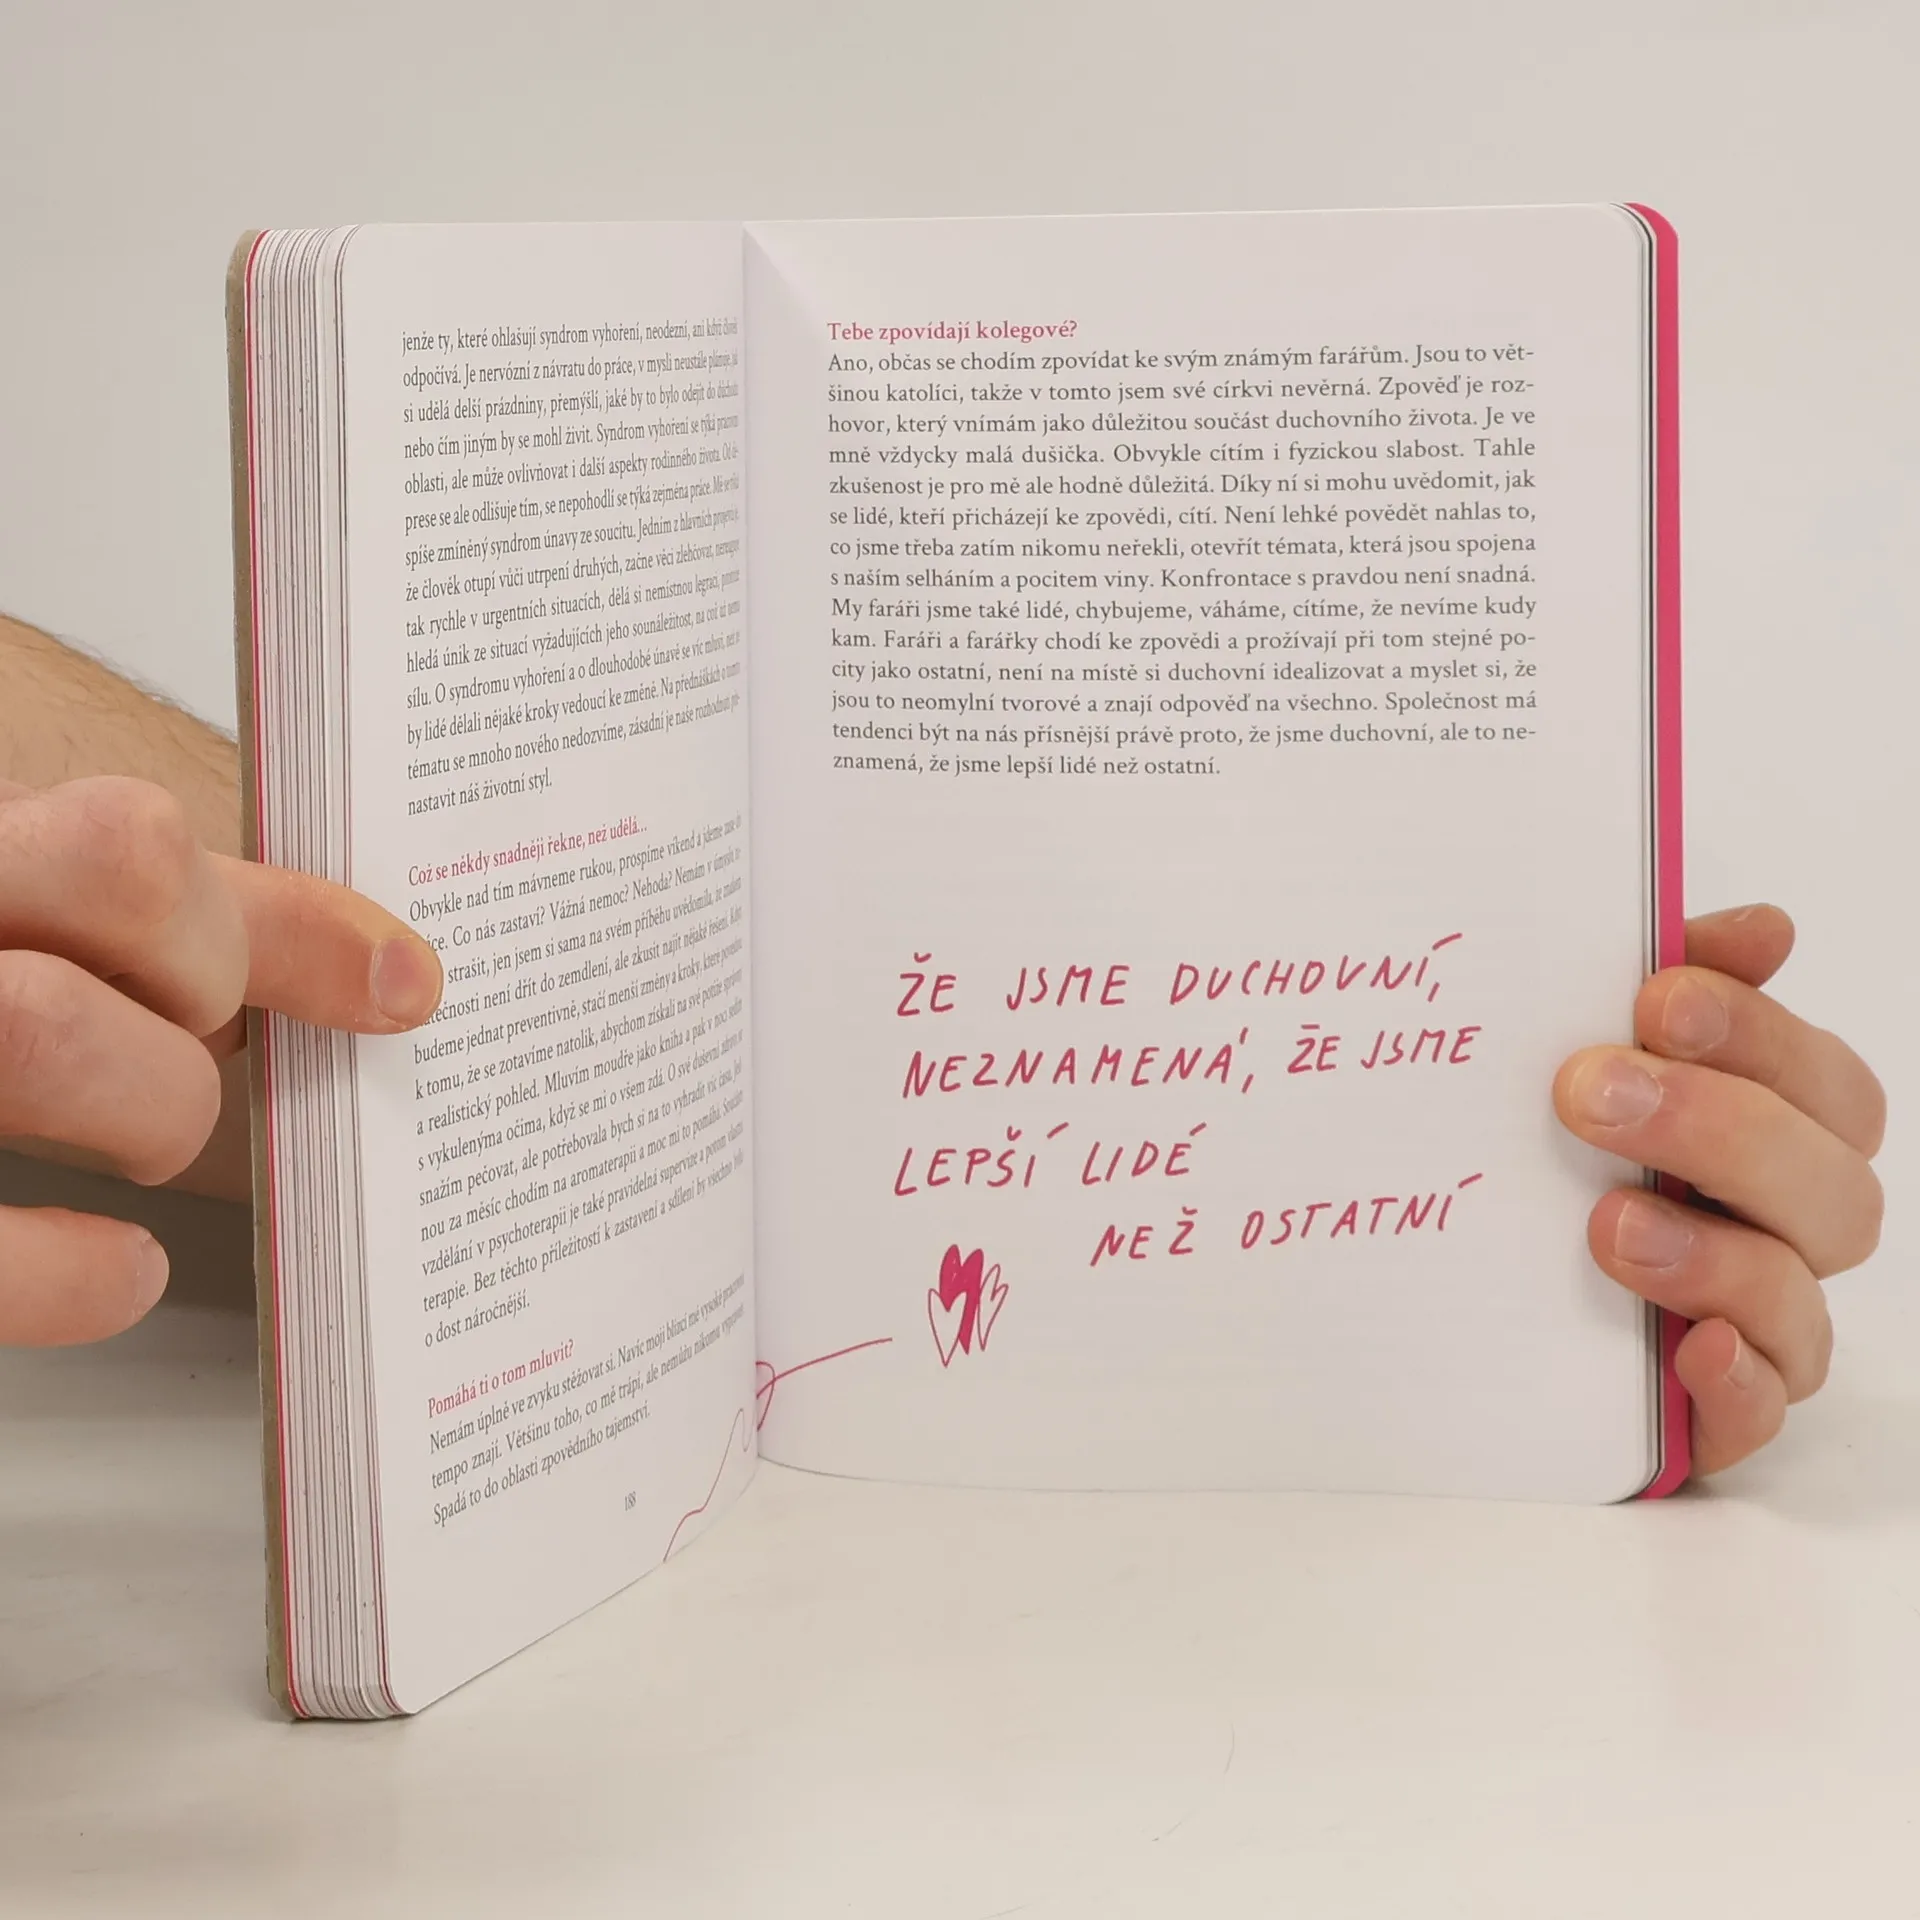 jenže ty, které ohlašují syndrom vyhoření, neodezní, ani když člověk
odpočívá. Je nervózní z návratu do práce, v mysli neustále plánuje, jak
si udělá delší prázdniny, přemýšlí, jaké by to bylo odejít do důchodu
nebo čím jiným by se mohl živit. Syndrom vyhoření se týká pracovní
oblasti, ale může ovlivňovat i další aspekty rodinného života. Od de-
prese se ale odlišuje tím, se nepohodlí se týká zejména práce. Mě se týká
spíše zmíněný syndrom únavy ze soucitu. Jedním z hlavních projevů je,
že člověk otupí vůči utrpení druhých, začne věci zlehčovat, nereaguje
tak rychle v urgentních situacích, dělá si nemístnou legraci, protože
hledá únik ze situací vyžadujících jeho sounáležitost, na což už nemá
sílu. O syndromu vyhoření a o dlouhodobé únavě se víc mluví, než že
by lidé dělali nějaké kroky vedoucí ke změně. Na přednáškách o tomto
tématu se mnoho nového nedozvíme, zásadní je naše rozhodnutí pře-
nastavit náš životní styl.
Což se někdy snadněji řekne, než udělá...
Obvykle nad tím mávneme rukou, prospíme víkend a jdeme zase do
práce. Co nás zastaví? Vážná nemoc? Nehoda? Nemám v úmyslu tě
strašit, jen jsem si sama na svém příběhu uvědomila, že znakem
statečnosti není dřít do zemdlení, ale zkusit najít nějaké řešení. Když
budeme jednat preventivně, stačí menší změny a kroky, které povedou
k tomu, že se zotavíme natolik, abychom získali na své potíže správný
a realistický pohled. Mluvím moudře jako kniha a pak v noci sedím
s vykulenýma očima, když se mi o všem zdá. O své duševní zdraví se
snažím pečovat, ale potřebovala bych si na to vyhradit víc času. Jed-
nou za měsíc chodím na aromaterapii a moc mi to pomáhá. Součástí
vzdělání v psychoterapii je také pravidelná supervize a potom vlastní
terapie. Bez těchto příležitostí k zastavení a sdílení by všechno bylo
o dost náročnější.
Pomáhá ti o tom mluvit?
Nemám úplně ve zvyku stěžovat si. Navíc moji blízcí mé vysoké pracovní
tempo znají. Většinu toho, co mě trápí, ale nemůžu nikomu vyprávět.
Spadá to do oblasti zpovědního tajemství.
188
Tebe zpovídají kolegové?
Ano, občas se chodím zpovídat ke svým známým farářům. Jsou to vět-
šinou katolíci, takže v tomto jsem své církvi nevěrná. Zpověď je roz-
hovor, který vnímám jako důležitou součást duchovního života. Je ve
mně vždycky malá dušička. Obvykle cítím i fyzickou slabost. Tahle
zkušenost je pro mě ale hodně důležitá. Díky ní si mohu uvědomit, jak
se lidé, kteří přicházejí ke zpovědi, cítí. Není lehké povědět nahlas to,
co jsme třeba zatím nikomu neřekli, otevřít témata, která jsou spojena
s naším selháním a pocitem viny. Konfrontace s pravdou není snadná.
My faráři jsme také lidé, chybujeme, váháme, cítíme, že nevíme kudy
kam. Faráři a farářky chodí ke zpovědi a prožívají při tom stejné po-
city jako ostatní, není na místě si duchovní idealizovat a myslet si, že
jsou to neomylní tvorové a znají odpověď na všechno. Společnost má
tendenci být na nás přísnější právě proto, že jsme duchovní, ale to ne-
znamená, že jsme lepší lidé než ostatní.
ŽE JSME DUCHOVNÍ,
NEZNAMENÁ, ŽE JSME
LEPŠÍ LIDÉ
NEŽ OSTATNÍ